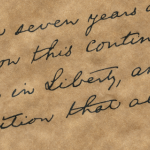 seven years a
on this contin
in Liberty, an
ition that al